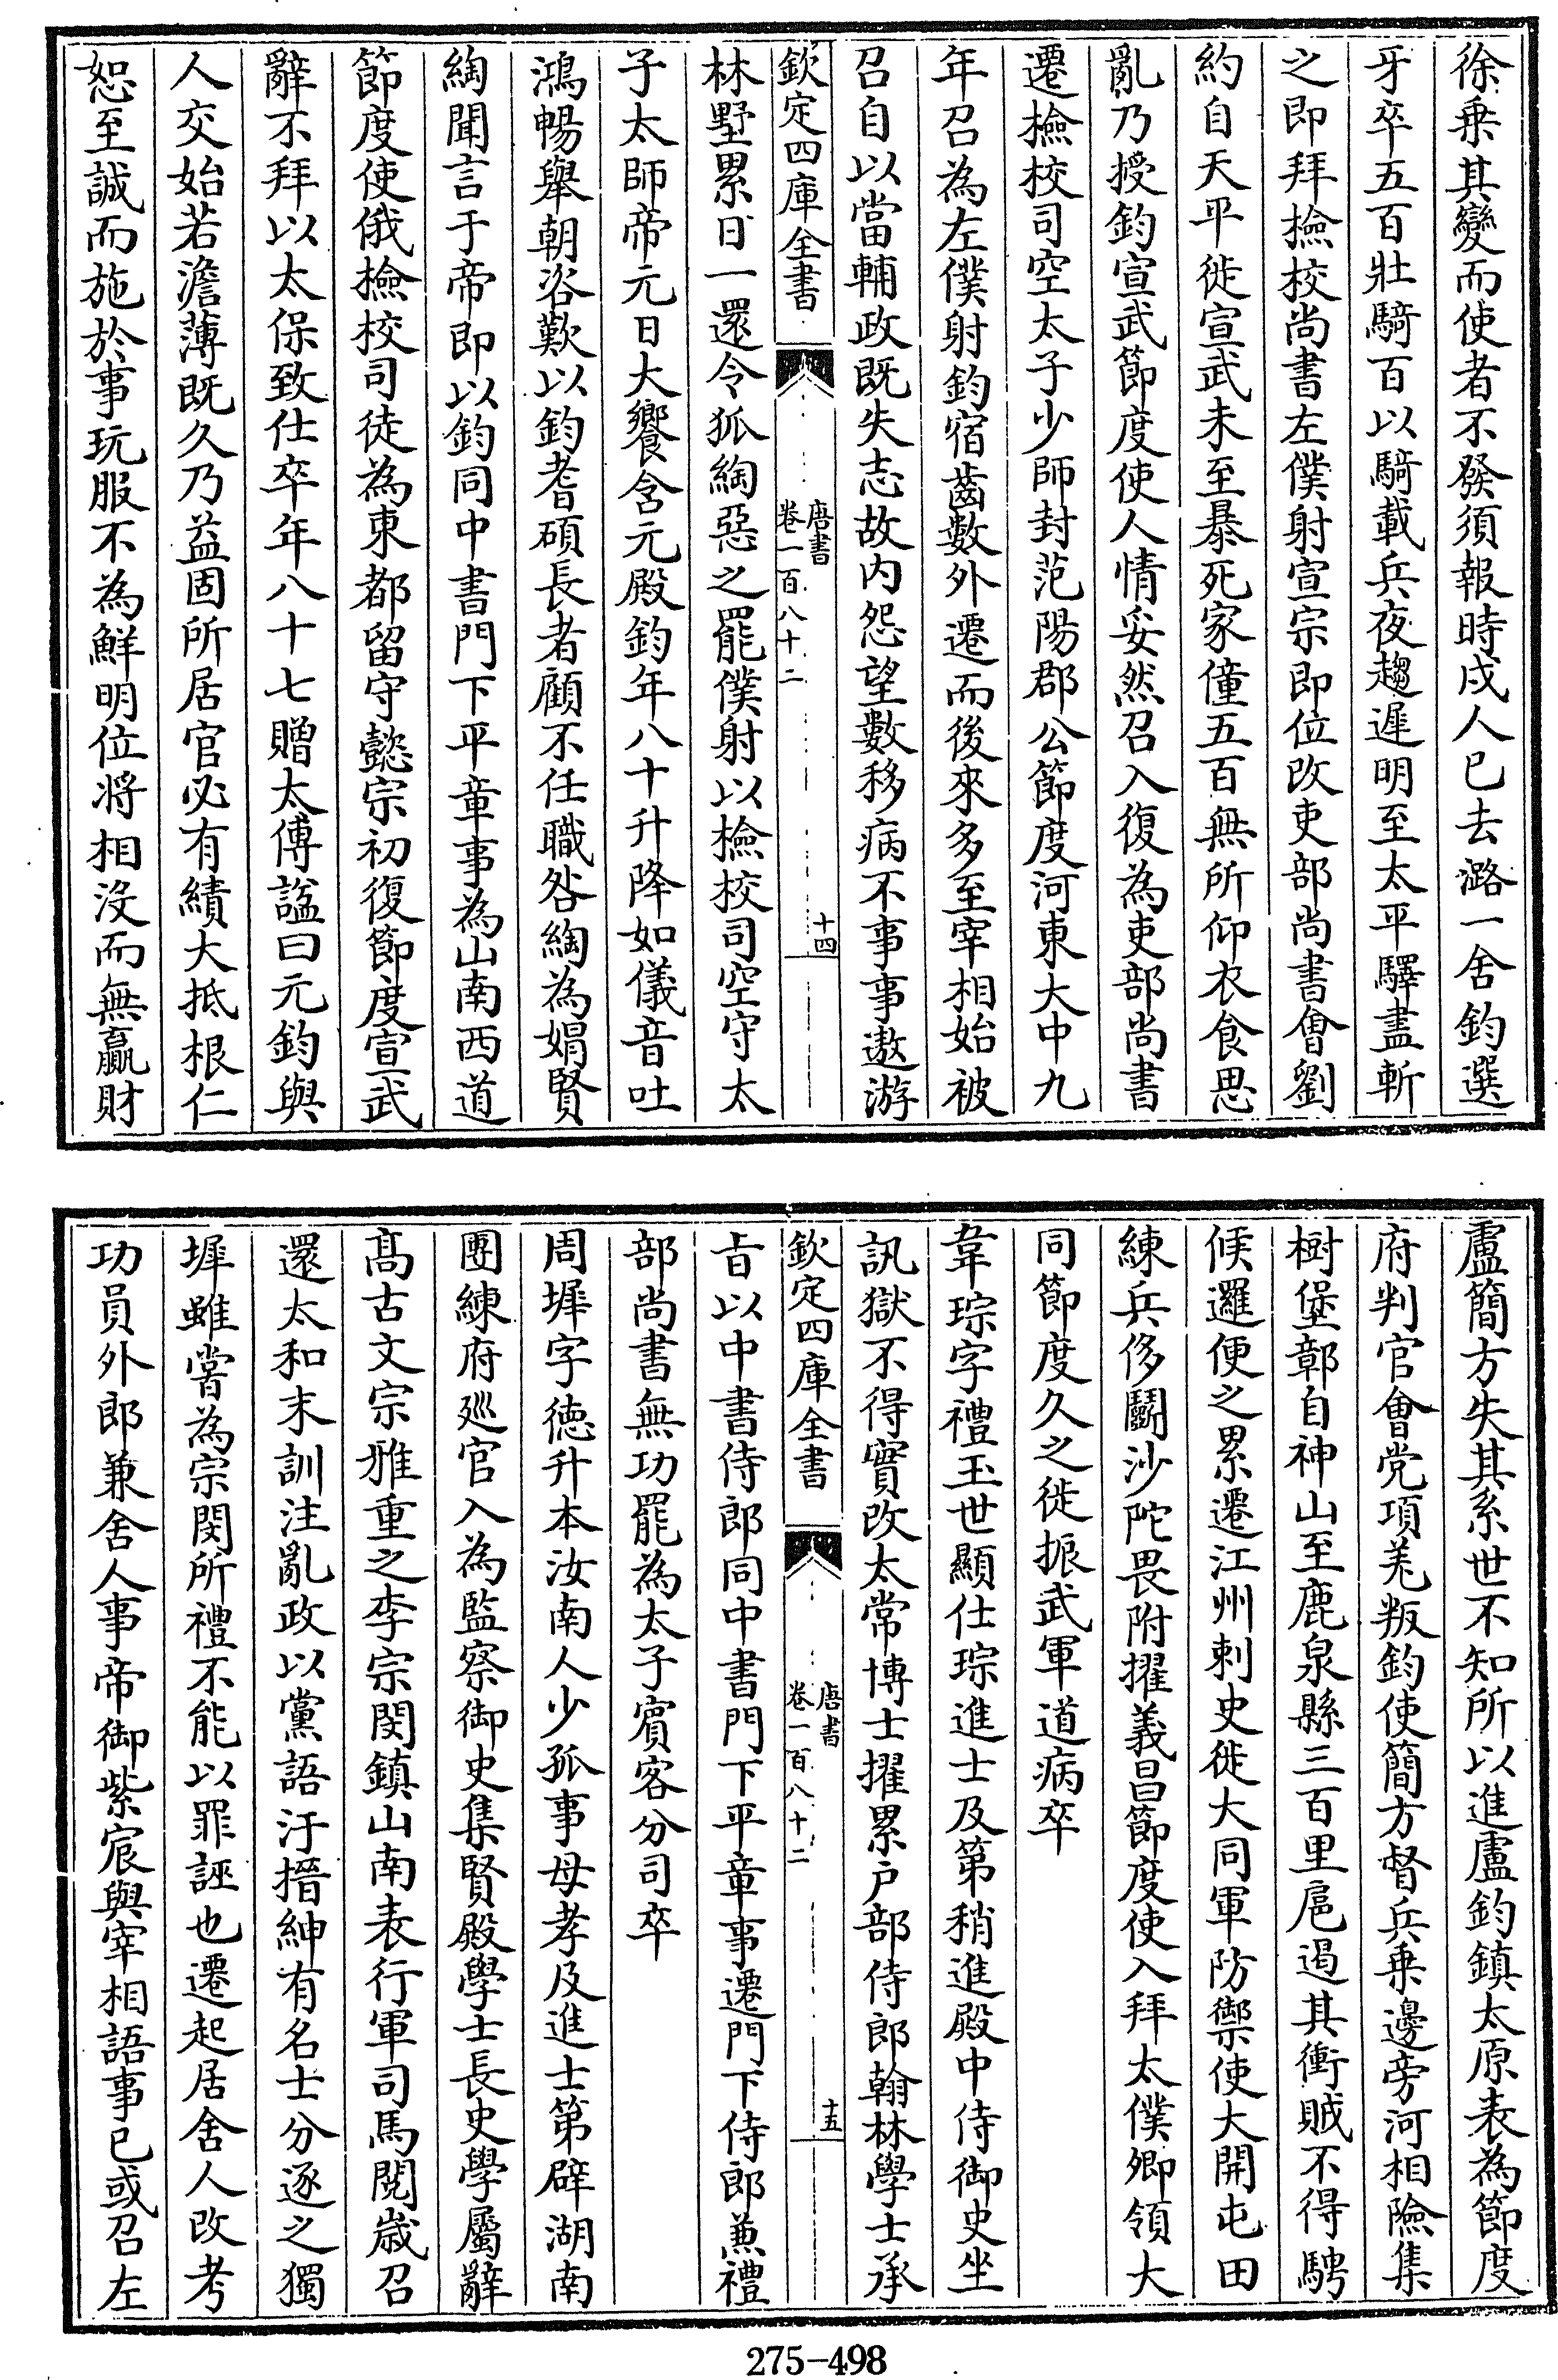 徐乗其變而使者不發須報時戍人已去潞一舍鈞選
牙卒五百壯騎百以騎載兵夜趨遲明至太平驛盡斬
之即拜檢校尚書左僕射宣宗即位改吏部尚書會劉
約自天平徙宣武未至暴死家僮五百無所仰衣食思
亂乃授鈞宣武節度使人情妥然召入復為吏部尚書
遷檢校司空太子少師封范陽郡公節度河東大中九
年召為左僕射鈞宿齒數外遷而後來多至宰相始被
召自以當輔政既失志故內怨望數移病不事事遨游
欽定四庫全書
唐書
卷一百八十二
十四
林墅累日一還令狐綯惡之罷僕射以檢校司空守太
子太師帝元日大饗含元殿鈞年八十升降如儀音吐
鴻暢舉朝咨歎以鈞耆碩長者顧不任職咎綯為娼賢
綯聞言于帝即以鈞同中書門下平章事為山南西道
節度使俄檢校司徒為東都留守懿宗初復節度宣武
辭不拜以太保致仕卒年八十七贈太傅諡曰元鈞與
人交始若澹薄既久乃益固所居官必有績大抵根仁
恕至誠而施於事玩服不為鮮明位將相沒而無贏財
盧簡方失其系世不知所以進盧鈞鎮太原表為節度
府判官會党項羌叛鈞使簡方督兵乗邊旁河相險集
樹堡鄣自神山至鹿泉縣三百里扈遏其衝賊不得騁
候邏便之累遷江州刺史徙大同軍防禦使大開屯田
練兵侈鬬沙陀畏附擢義昌節度使入拜太僕卿領大
同節度久之徙振武軍道病卒
韋琮字禮玉世顯仕琮進士及第稍進殿中侍御史坐
訊獄不得實改太常博士擢累户部侍郎翰林學士承
欽定四庫全書
唐書
卷一百八十二
十五
㫖以中書侍郎同中書門下平章事遷門下侍郎兼禮
部尚書無功罷為太子賓客分司卒
周墀字徳升本汝南人少孤事母孝及進士第辟湖南
團練府廵官入為監察御史集賢殿學士長史學屬辭
髙古文宗雅重之李宗閔鎮山南表行軍司馬閱歲召
還太和末訓注亂政以黨語汙搢紳有名士分逐之獨
墀雖嘗為宗閔所禮不能以罪誣也遷起居舍人改考
功員外郎兼舍人事帝御紫宸與宰相語事已或召左
275-498